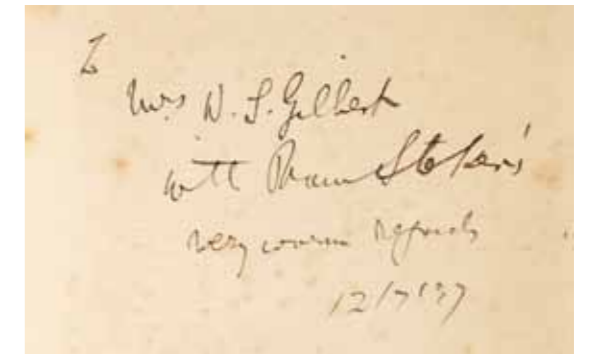 To
Mrs W. S. Gilbert
with Bram Stoker's
very warm regards
12/7/97